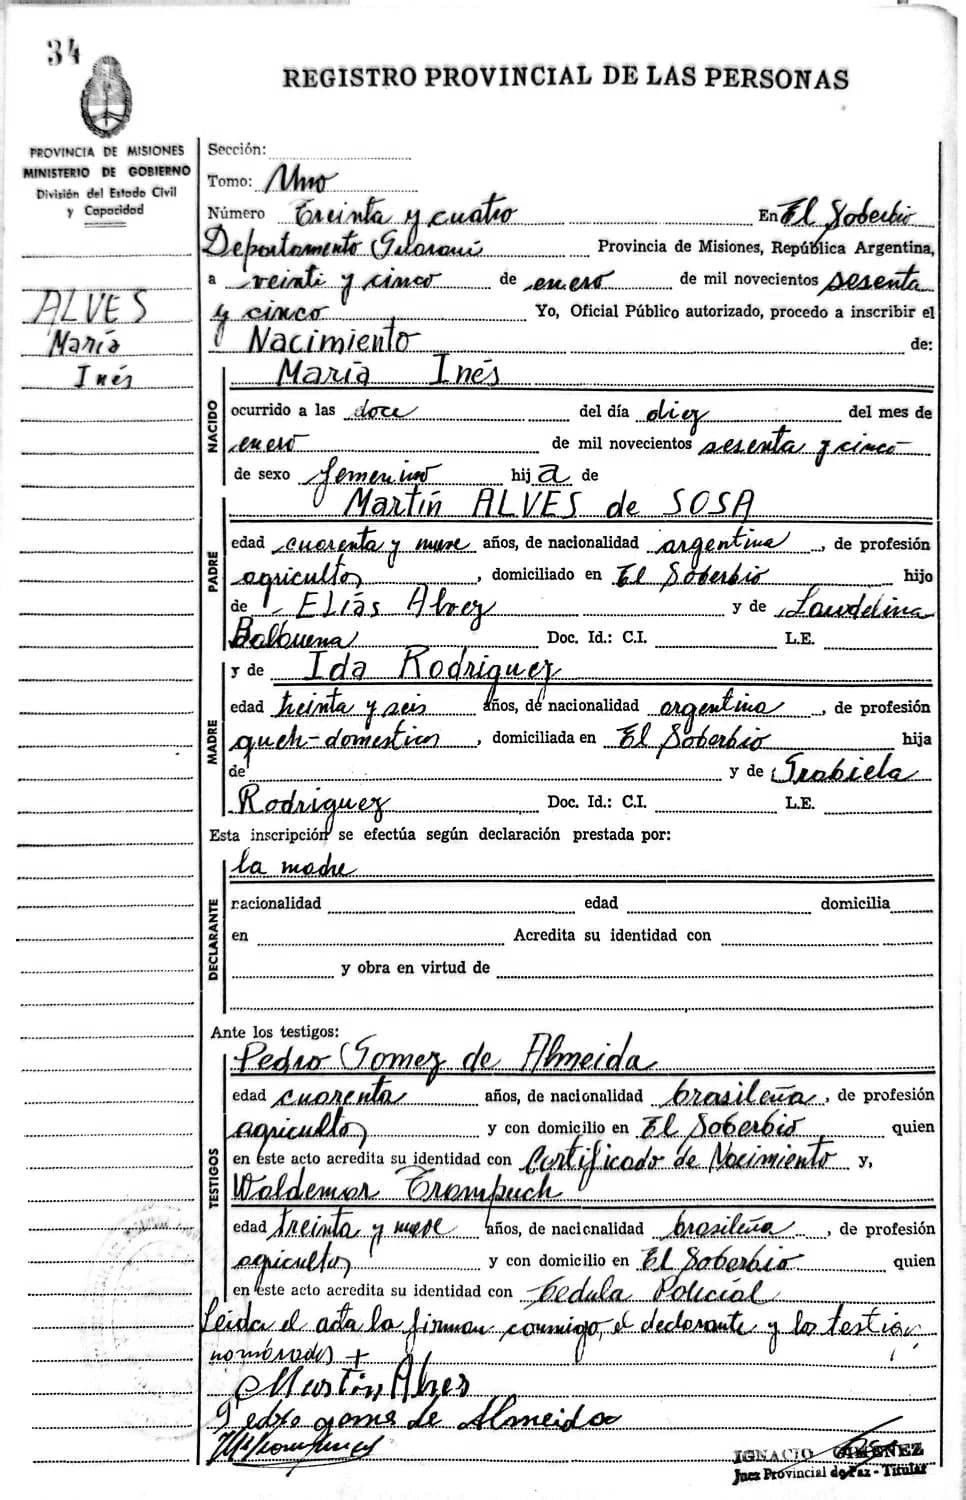 34
REGISTRO PROVINCIAL DE LAS PERSONAS
PROVINCIA DE MISIONES
MINISTERIO DE GOBIERNO
División del Estado Civil
y Capacidad
ALVES
María
Inés
Sección:
Tomo: Uno
Número Treinta y cuatro En El Soberbio
Departamento Guaraní Provincia de Misiones, República Argentina,
a veinti y cinco de enero de mil novecientos sesenta
y cinco Yo, Oficial Público autorizado, procedo a inscribir el
Nacimiento de:
NACIDO
María Inés
ocurrido a las doce del día diez del mes de
enero de mil novecientos sesenta y cinco
de sexo femenino hija de
PADRE
Martín ALVES de SOSA
edad cuarenta y nueve años, de nacionalidad argentina, de profesión
agricultor, domiciliado en El Soberbio hijo
de Elías Alvez y de Laudelina
Balbuena Doc. Id.: C.I. L.E.
MADRE
y de Ida Rodriguez
edad treinta y seis años, de nacionalidad argentina, de profesión
queh-domesticos, domiciliada en El Soberbio hija
de y de Grabiela
Rodriguez Doc. Id.: C.I. L.E.
Esta inscripción se efectúa según declaración prestada por:
DECLARANTE
la madre
nacionalidad edad domicilia
en Acredita su identidad con
y obra en virtud de
Ante los testigos:
TESTIGOS
Pedro Gomez de Almeida
edad cuarenta años, de nacionalidad brasileña, de profesión
agricultor y con domicilio en El Soberbio quien
en este acto acredita su identidad con Certificado de Nacimiento y,
Waldemar Trompuch
edad treinta y nueve años, de nacionalidad brasileña, de profesión
agricultor y con domicilio en El Soberbio quien
en este acto acredita su identidad con Cedula Policial
Leida el acta la firman conmigo, el declarante y los testigos
nombrados +
Martin Alves
Pedro gomes de Almeida
IGNACIO GIMENEZ
Juez Provincial de Paz - Titular